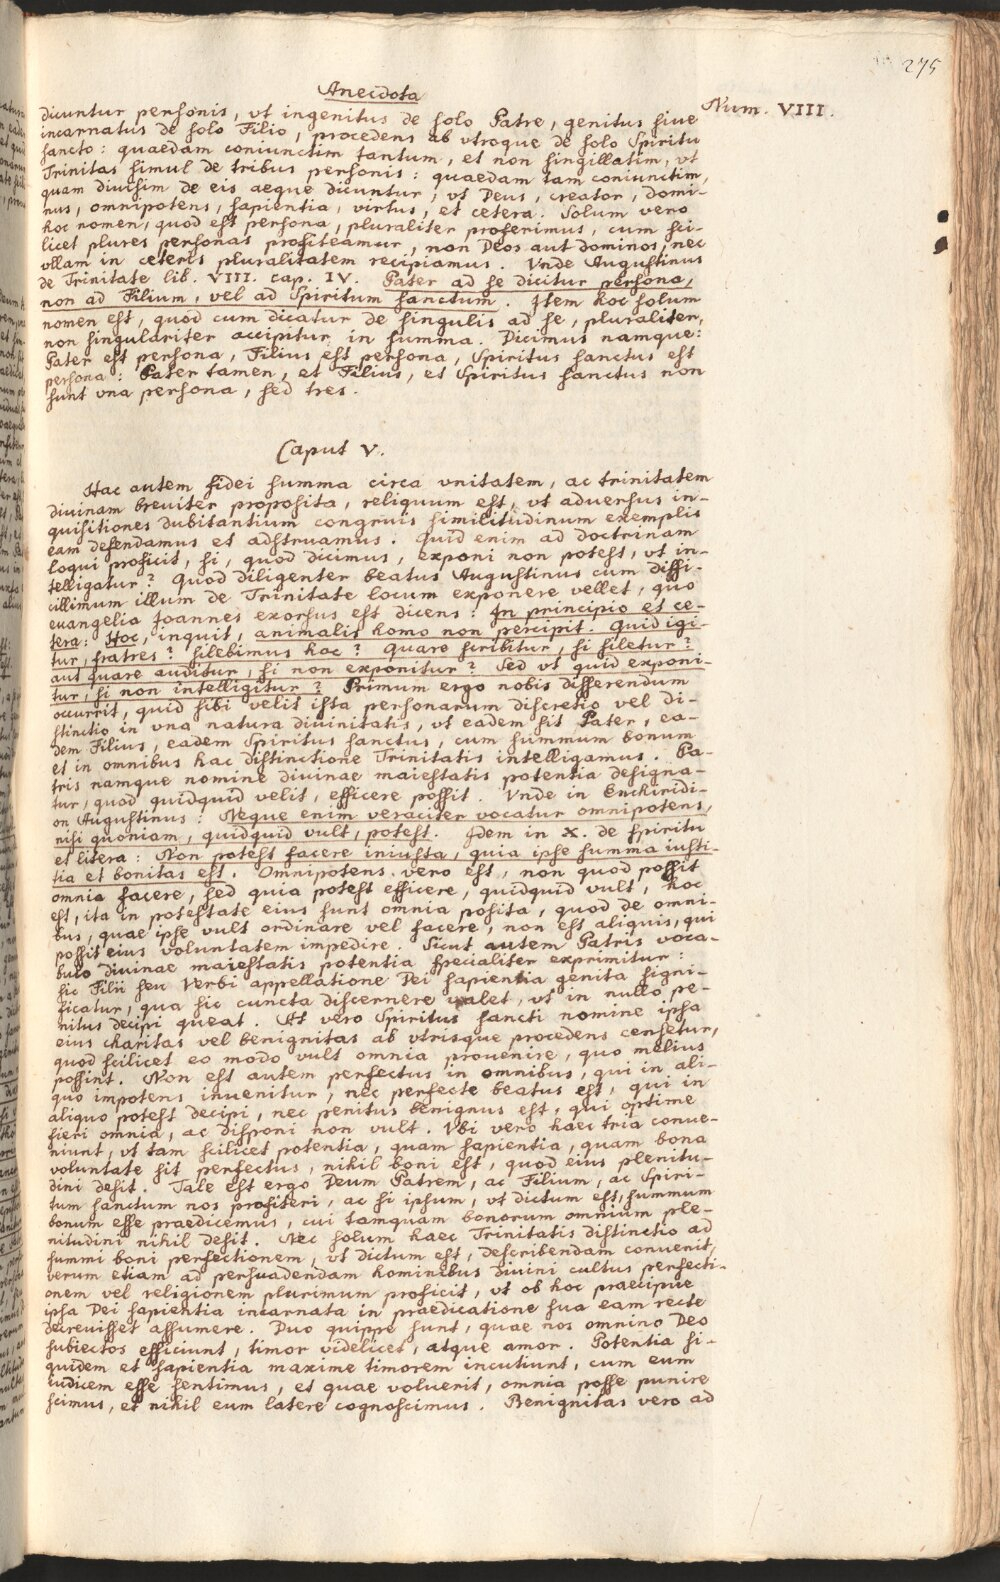 275
Anecdota
Num. VIII.
dicuntur personis, vt ingenitus de solo Patre, genitus siue
incarnatus de solo Filio, procedens ab vtroque de solo Spiritu
sancto: quaedam coniunctim tantum, et non singillatim, vt
Trinitas simul de tribus personis: quaedam tam coniunctim,
quam diuisim de eis aeque dicuntur, vt Deus, creator, domi-
nus, omnipotens, sapientia, virtus, et cetera. Solum vero
hoc nomen, quod est persona, pluraliter proferimus, cum sci-
licet plures personas profiteamur, non Deos aut dominos, nec
vllam in ceteris pluralitatem recipiamus. Vnde Augustinus
de Trinitate lib. VIII. cap. IV. Pater ad se dicitur persona,
non ad Filium, vel ad Spiritum sanctum. Item hoc solum
nomen est, quod cum dicatur de singulis ad se, pluraliter,
non singulariter accipitur in summa. Dicimus namque:
Pater est persona, Filius est persona, Spiritus sanctus est
persona: Pater tamen, et Filius, et Spiritus sanctus non
sunt vna persona, sed tres.
Caput V.
Hac autem fidei summa circa vnitatem, ac trinitatem
diuinam breuiter proposita, reliquum est, vt aduersus in-
quisitiones dubitantium congruis similitudinum exemplis
eam defendamus et adstruamus. Quid enim ad doctrinam
loqui proficit, si, quod dicimus, exponi non potest, vt in-
telligatur? Quod diligenter beatus Augustinus cum diffi-
cillimum illum de Trinitate locum exponere vellet, quo
euangelia Joannes exorsus est dicens: In principio et ce-
tera: Hoc, inquit, animalis homo non percipit. Quid igi-
tur, fratres? silebimus hoc? Quare scribitur, si siletur?
aut quare auditur, si non exponitur? Sed vt quid exponi-
tur, si non intelligitur? Primum ergo nobis disserendum
occurrit, quid sibi velit ista personarum discretio vel di-
stinctio in vna natura diuinitatis, vt eadem sit Pater, ea-
dem Filius, eadem Spiritus sanctus, cum summum bonum
et in omnibus hac distinctione Trinitatis intelligamus. Pa-
tris namque nomine diuinae maiestatis potentia designa-
tur, quod quidquid velit, efficere possit. Vnde in Enchiridi-
on Augustinus: Neque enim veraciter vocatur omnipotens,
nisi quoniam, quidquid vult, potest. Idem in X. de spiritu
et litera: Non potest facere iniusta, quia ipse summa iusti-
tia et bonitas est. Omnipotens vero est, non quod possit
omnia facere, sed quia potest efficere, quidquid vult, hoc
est, ita in potestate eius sunt omnia posita, quod de omni-
bus, quae ipse vult ordinare vel facere, non est aliquis, qui
possit eius voluntatem impedire. Sicut autem Patris voca-
bulo diuinae maiestatis potentia specialiter exprimitur:
sic Filii seu Verbi appellatione Dei sapientia genita signi-
ficatur, qua sic cuncta discernere valet, vt in nullo pe-
nitus decipi queat. At vero Spiritus sancti nomine ipsa
eius charitas vel benignitas ab vtrisque procedens censetur,
quod scilicet eo modo vult omnia prouenire, quo melius
possint. Non est autem perfectus in omnibus, qui in ali-
quo impotens inuenitur, nec perfecte beatus est, qui in
aliquo potest decipi, nec penitus benignus est, qui optime
fieri omnia, ac disponi non vult. Vbi vero haec tria conue-
niunt, vt tam scilicet potentia, quam sapientia, quam bona
voluntate sit perfectus, nihil boni est, quod eius plenitu-
dini desit. Tale est ergo Deum Patrem, ac Filium, ac Spiri-
tum sanctum nos profiteri, ac si ipsum, vt dictum est, summum
bonum esse praedicemus, cui tamquam bonorum omnium ple-
nitudini nihil desit. Nec solum haec Trinitatis distinctio ad
summi boni perfectionem, vt dictum est, describendam conuenit,
verum etiam ad persuadendam hominibus diuini cultus perfecti-
onem vel religionem plurimum proficit, vt ob hoc praecipue
ipsa Dei sapientia incarnata in praedicatione sua eam recte
decreuisset assumere. Duo quippe sunt, quae nos omnino Deo
subiectos efficiunt, timor videlicet, atque amor. Potentia si-
quidem et sapientia maxime timorem incutiunt, cum eum
iudicem esse sentimus, et quae voluerit, omnia posse punire
scimus, et nihil eum latere cognoscimus. Benignitas vero ad